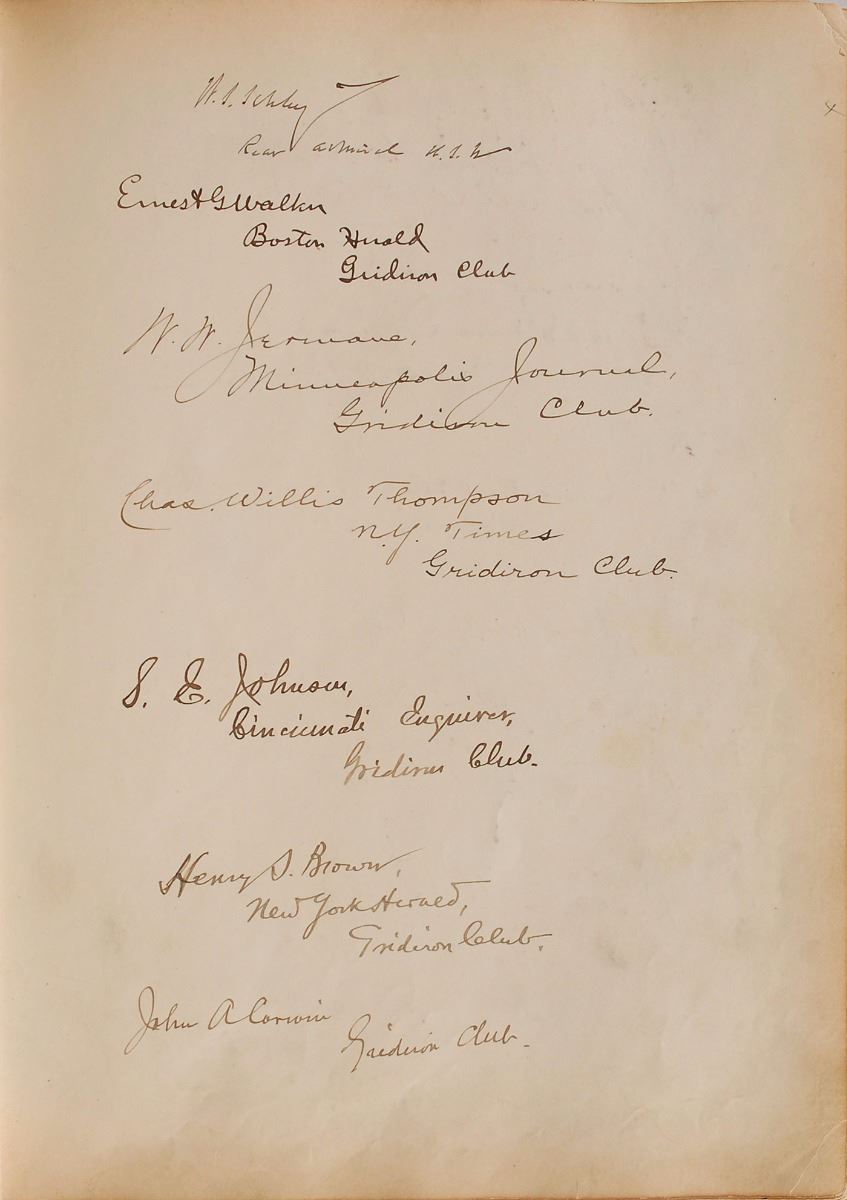 W. S. Schley
Rear Admiral U.S.N
Ernest G Walker
Boston Herald
Gridiron Club
W. W. Jermane,
Minneapolis Journal,
Gridiron Club.
Chas. Willis Thompson
N.Y. Times
Gridiron Club.
S. E. Johnson,
Cincinnati Enquirer,
Gridiron Club.
Henry S. Brown,
New York Herald,
Gridiron Club.
John A Corwin
Gridiron Club.